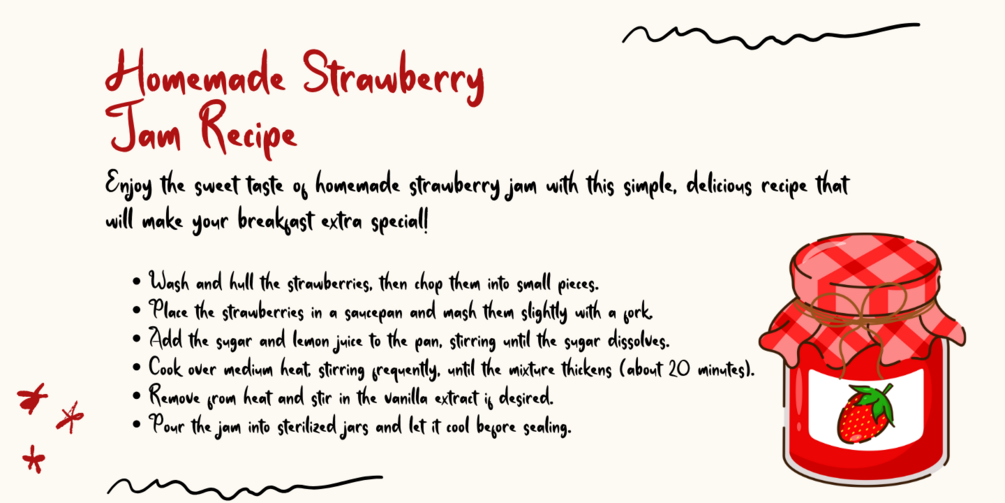 Homemade Strawberry
Jam Recipe
Enjoy the sweet taste of homemade strawberry jam with this simple, delicious recipe that
will make your breakfast extra special!
• Wash and hull the strawberries, then chop them into small pieces.
• Place the strawberries in a saucepan and mash them slightly with a fork.
• Add the sugar and lemon juice to the pan, stirring until the sugar dissolves.
• Cook over medium heat, stirring frequently, until the mixture thickens (about 20 minutes).
• Remove from heat and stir in the vanilla extract if desired.
• Pour the jam into sterilized jars and let it cool before sealing.